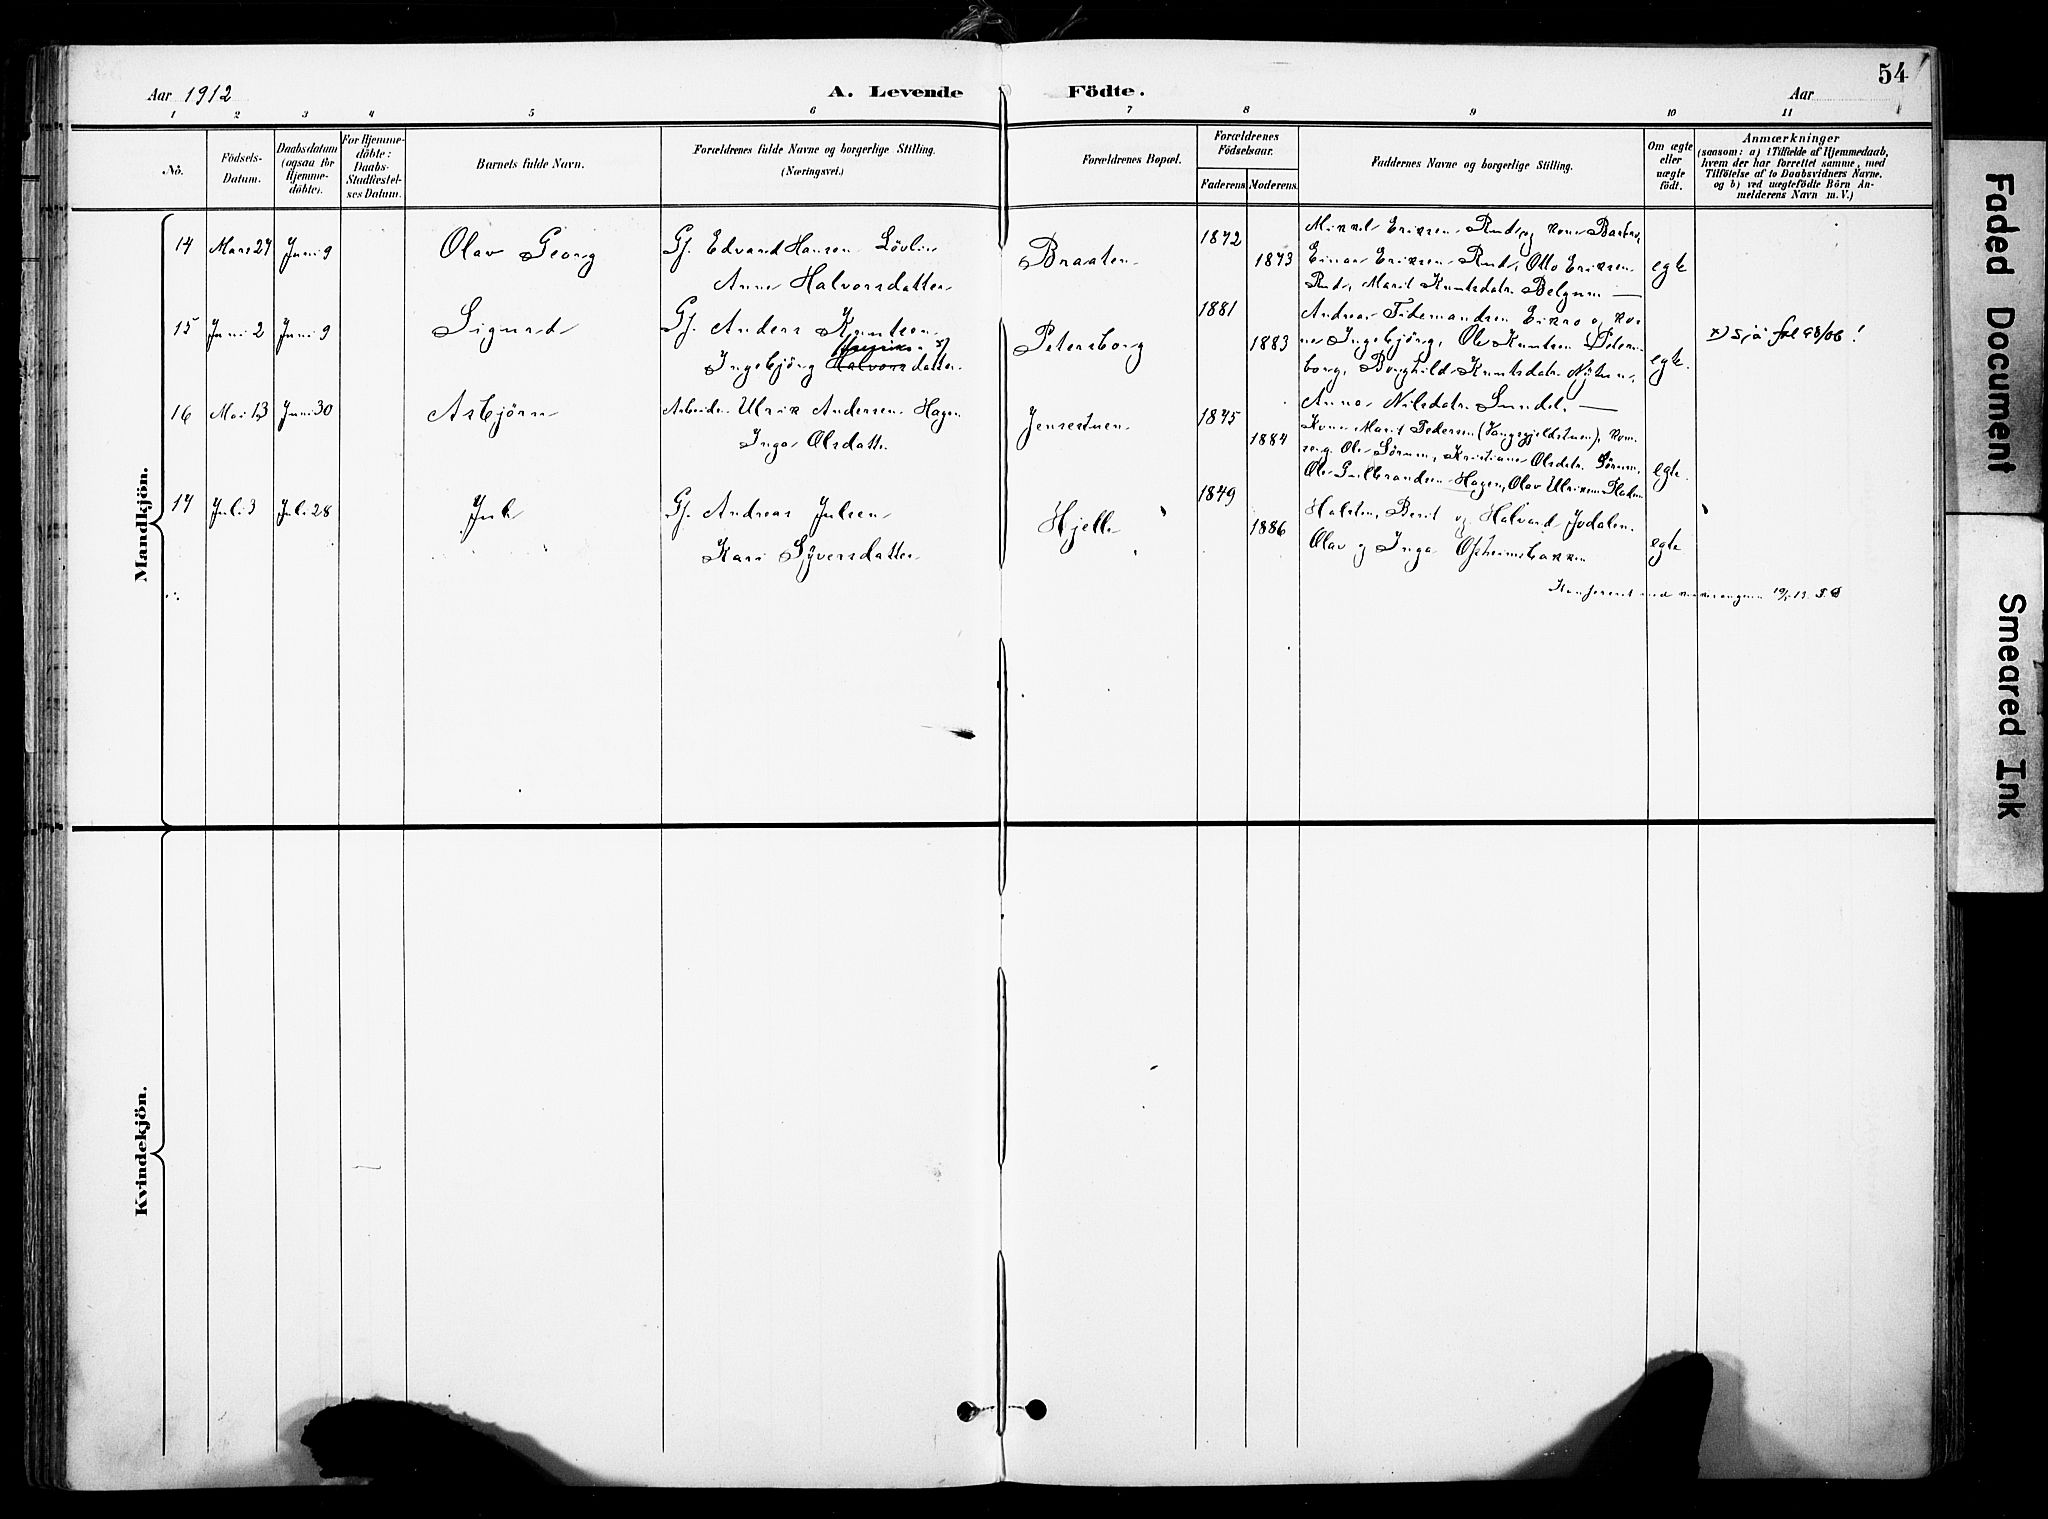 54
Aar 1912
A. Levende Födte.
Aar
1 2 3 4 5 6 7 8 9 10 11
No.
Födsels-Datum.
Daabsdatum (ogsaa for Hjemme-döbte).
For Hjemme-döbte: Daabs-Stadfæstel-ses Datum.
Barnets fulde Navn.
Forældrenes fulde Navne og borgerlige Stilling.
(Næringsvei.)
Forældrenes Bopæl.
Forældrenes Födselsaar.
Faderens. Moderens.
Faddernes Navne og borgerlige Stilling.
Om ægte eller uægte födt.
Anmærkninger
(saasom: a) i Tilfælde af Hjemmedaab,
hvem der har forrettet samme, med
Tilföielse af to Daabsvidners Navne.
og b) ved uægtefödte Börn An-
melderens Navn m. V.)
Mandkjön.
14 Mars 27 Juni 9 Olav Georg Gj. Edvard Hansen Lövlie
Anne Halvorsdatter
Braaten 1872 1873
Mikkel Eriksen Rud og kone Barbro,
Einar Eriksen Rud, Otto Eriksen
Rud, Marit Knutsdatr. Belgum —
egte
15 Juni 2 Juni 9 Sigurd Gj. Anders Knutsen
Ingebjörg Halvorsdatter
Petersborg 1881 1883
Andreas Tidemandsen Eikro og ko-
ne Ingebjörg, Ole Knutsen Peters-
borg, Borghild Knutsdatr. Nytun,
Anna Nilsdatr. Sundel. —
egte.
x) sjå fol 98/06!
16 Mai 13 Juni 30 Asbjörn Arbeider Ulrik Andersen Hagen
Inga Olsdatter
Jensestuen 1875 1884
Kone Marit Pedersen
Ole Sörum, Kristiane Olsdatr. Sörum,
Ole Gulbrandsen Hagen, Olav Ulriksen
egte.
17 Juli 3 Juli 28 Jul Gj. Andreas Julsen
Kari Syversdatter
Hjelle 1879 1886
Halsten, Berit og Halvard Jodalen.
Olav og Inga Opheimsbakken
egte
Konfereret med 19/1 13.
Kvindekjön.
Faded Document
Smeared Ink